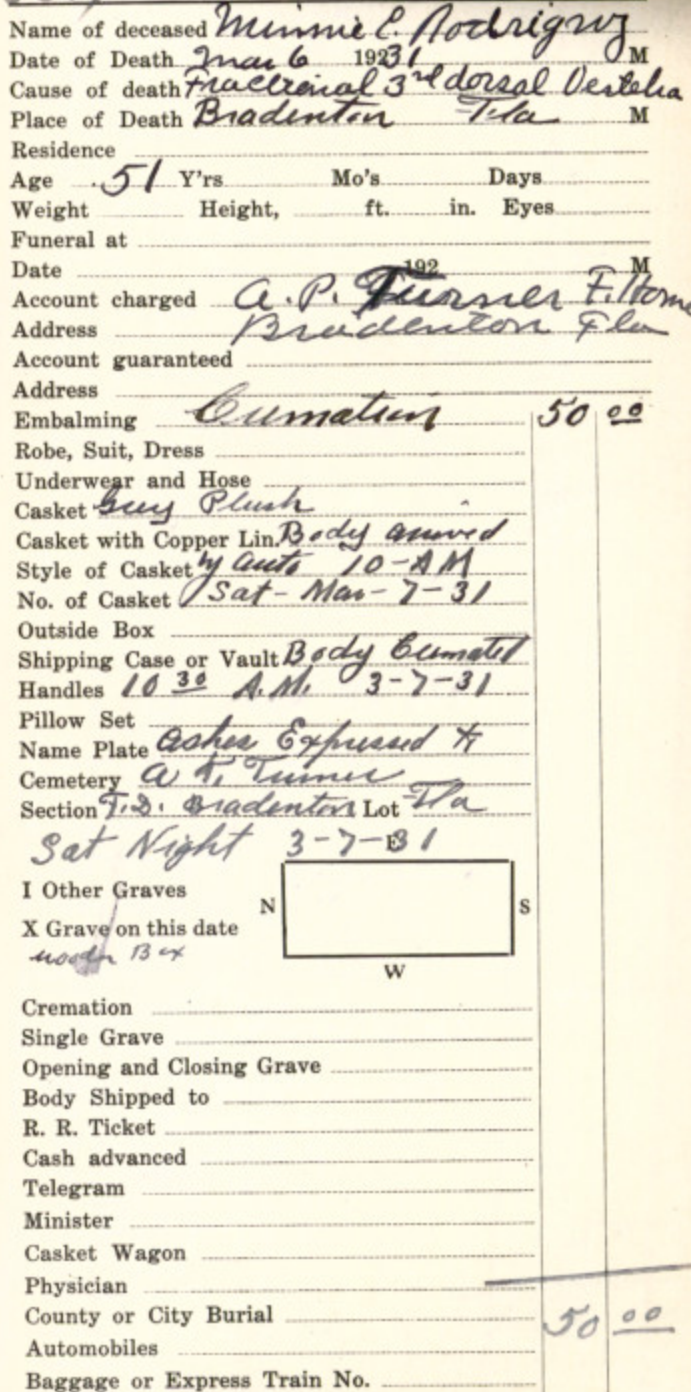 Name of deceased Minnie E. Rodrigruz
Date of Death Mar 6 19231 M
Cause of death Fractional 3rd dorsal Vertebra
Place of Death Bradenton Fla M
Residence
Age 51 Y'rs Mo's Days
Weight Height, ft. in. Eyes
Funeral at
Date 192 M
Account charged A. P. Turner F. Home
Address Bradenton Fla
Account guaranteed
Address
Embalming Cremation 50 00
Robe, Suit, Dress
Underwear and Hose
Casket Grey Plush
Casket with Copper Lin. Body arrived
Style of Casket by auto 10-AM
No. of Casket Sat - Mar - 7-31
Outside Box
Shipping Case or Vault Body Cremated
Handles 10 30 A.M. 3-7-31
Pillow Set
Name Plate Ashes Expressed to
Cemetery A Turner
Section F.D. Bradenton Lot Fla
Sat Night 3-7-31
E
I Other Graves
N S
X Grave on this date
wooden Box
W
Cremation
Single Grave
Opening and Closing Grave
Body Shipped to
R. R. Ticket
Cash advanced
Telegram
Minister
Casket Wagon
Physician
County or City Burial 50 00
Automobiles
Baggage or Express Train No.